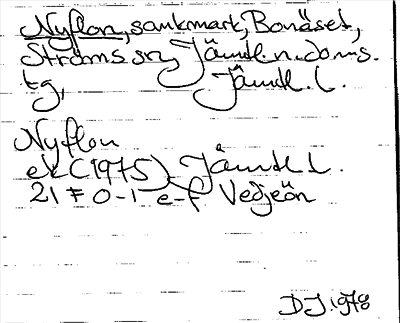 Nyflon, sankmart, Bonäset,
Ströms sn, Jämtl. n. doms.
tg, Jämtl. l.
Nyflon
ek (1975) Jämtl l.
21 F 0-1 e-f Vedjeön
DJ. 1978